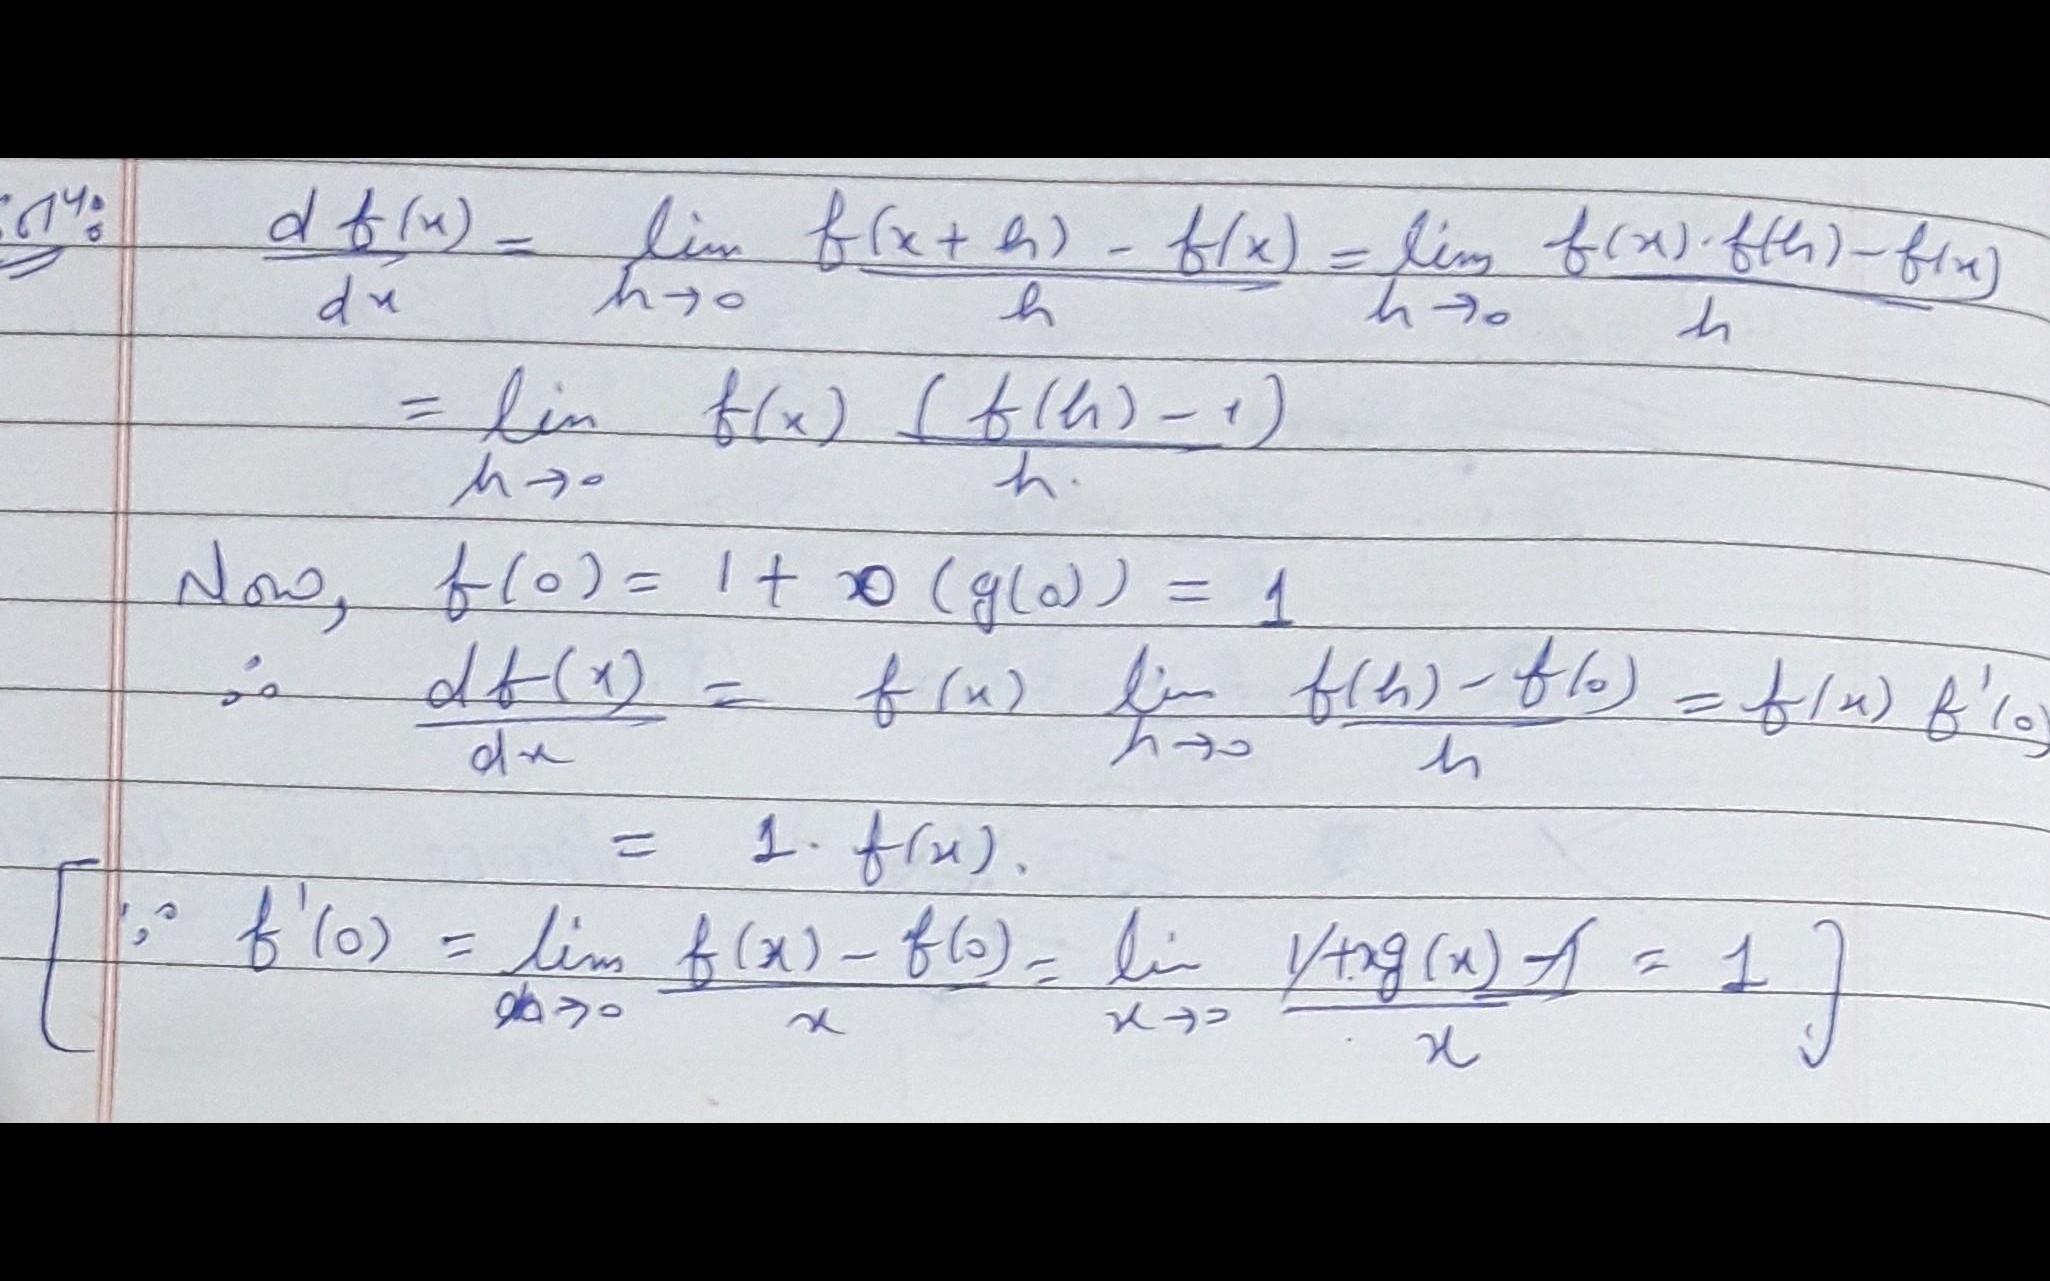 Solⁿ: d f(x)/dx = lim h→0 f(x+h) - f(x)/h = lim h→0 f(x)·f(h) - f(x)/h
= lim h→0 f(x) (f(h) - 1)/h.
Now, f(0) = 1 + 0 (g(0)) = 1
∴ df(x)/dx = f(x) lim h→0 f(h) - f(0)/h = f(x) f'(0)
= 1. f(x).
[∵ f'(0) = lim x→0 f(x) - f(0)/x = lim x→0 1+xg(x) - 1/x = 1]